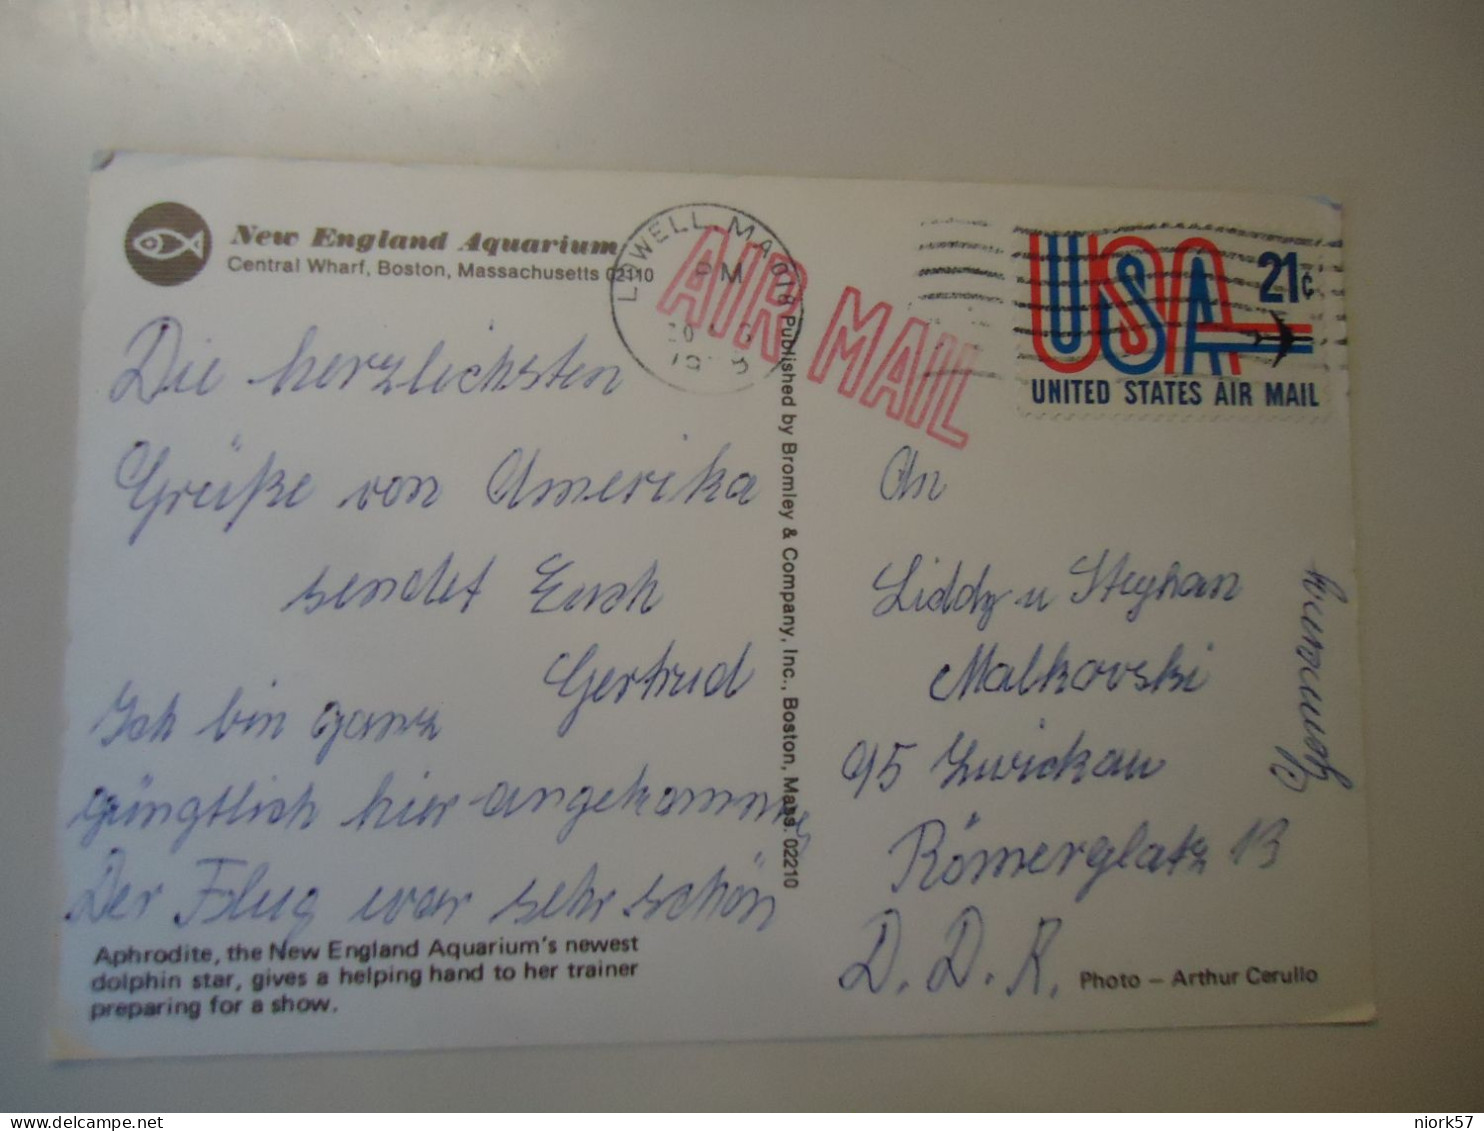 New England Aquarium
Central Wharf, Boston, Massachusetts 02110
LOWELL, MA 018
PM
AIR MAIL
USA 21¢
UNITED STATES AIR MAIL
Die herzlichsten
Grüße von Amerika
sendet Euch
Gertrud
Ich bin ganz
güngtlich hier angekommen
Der Flug war sehr schön
Aphrodite, the New England Aquarium's newest
dolphin star, gives a helping hand to her trainer
preparing for a show.
Published by Bromley & Company, Inc., Boston, Mass. 02210
An
Liddy u Stephan
Malkovski
95 Zwickau
Römerplatz 13
D.D.R.
Germany
Photo – Arthur Cerullo
niork57